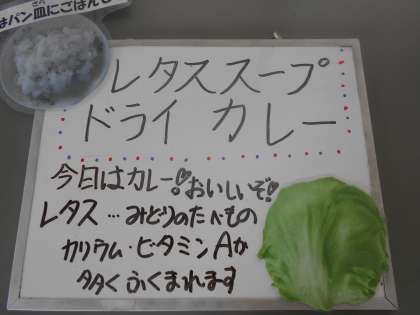 はパン皿にごはんを
レタススープ
ドライカレー
今日はカレー!おいしいぞ!
レタス…みどりのたべもの
カリウム・ビタミンAが
多くふくまれます